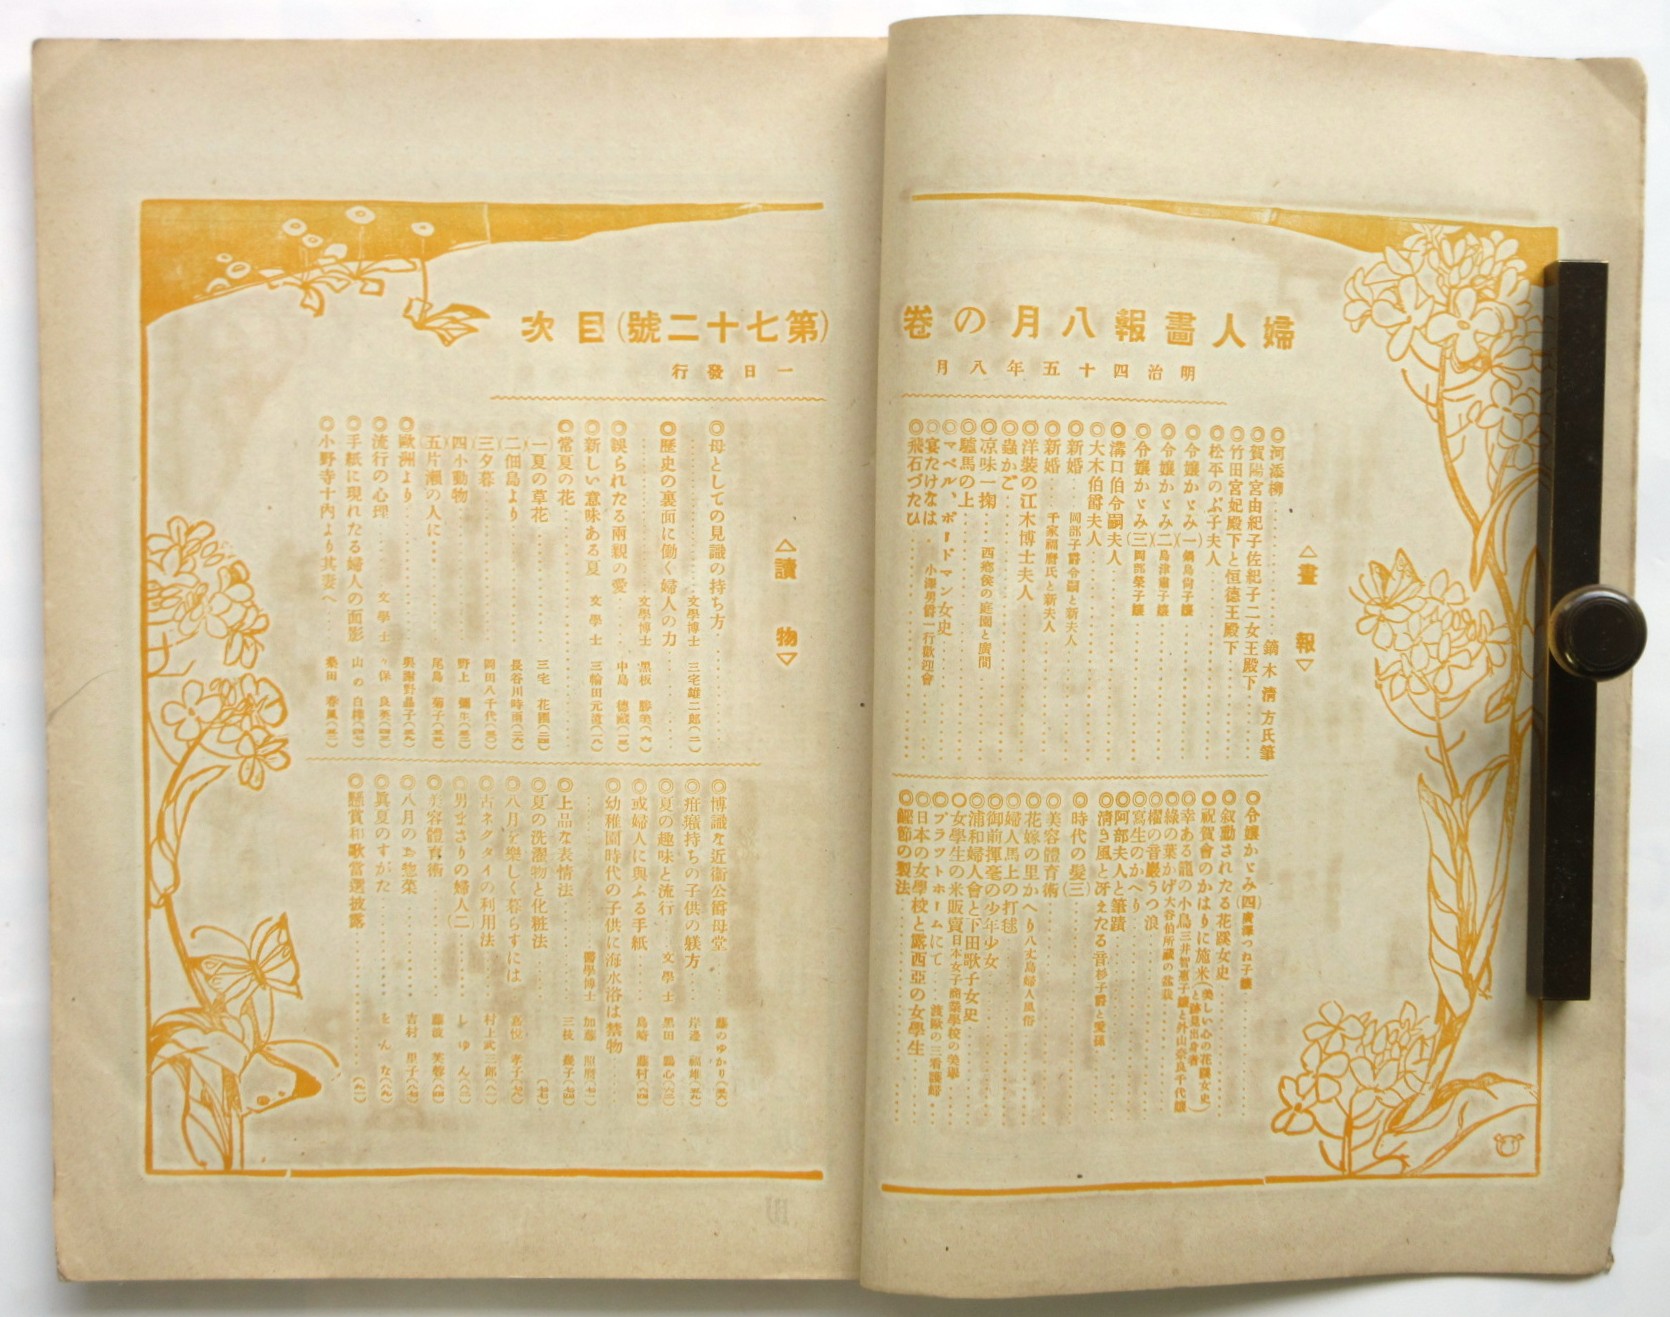 婦人畫報八月の卷
(第七十二號)目次
明治四十五年八月
一日發行
△畫報▽
◎河添柳 鏑木清方氏筆
◎賀陽宮由紀子佐紀子二女王殿下
◎竹田宮妃殿下と恒德王殿下
◎松平のぶ子夫人
◎令孃かゞみ(一)鍋島尙子孃
◎令孃かゞみ(二)島津 子孃
◎令孃かゞみ(三)岡部榮子孃
◎溝口伯令嗣夫人
◎大木伯爵夫人
◎新婚 岡部子爵令嗣と新夫人
◎新婚 千家 麿氏と新夫人
◎洋裝の江木博士夫人
◎蟲かご
◎凉味一掬 西鄕侯の庭園と廣間
◎驢馬の上
◎マベル、ボードマン女史
◎宴たけなは 小澤男爵一行歡迎會
◎飛石づたひ
◎令孃かゞみ(四)廣澤つね子孃
◎敍勳されたる花蹊女史
◎祝賀會のかはりに施米(美しい心の花蹊女史と跡見出身者)
◎幸ある籠の小鳥 三井智惠子孃と外山奈良千代孃
◎綠の葉かげ 大谷伯所藏の盆栽
◎櫂の音巖うつ浪
◎寫生のかへり
◎阿部夫人と筆蹟
◎淸き風と冴えたる音 杉子爵と愛孫
◎時代の髮(三)
◎美容體育術
◎花嫁の里かへり 八丈島婦人風俗
◎婦人馬上の打毬
◎御前揮毫の少年少女
◎浦和婦人會と下田歌子女史
◎女學生の米販賣 日本女子商業學校の美擧
◎プラツトホームにて 渡歐の三看護婦
◎日本の女學校と露西亞の女學生
◎鰹節の製法
△讀物▽
◎母としての見識の持ち方 文學博士 三宅雄二郎(二)
◎歷史の裏面に働く婦人の力 文學博士 黑板勝美(六)
◎誤られたる兩親の愛 中島德藏(一三)
◎新しい意味ある夏 文學士 三輪田元道(一八)
◎常夏の花
(一)夏の草花 三宅花圃(二四)
(二)佃島より 長谷川時雨(二六)
(三)夕暮 岡田八千代(三〇)
(四)小動物 野上彌生(三二)
(五)片瀨の人に 尾島菊子(三五)
◎歐洲より 與謝野晶子(三九)
◎流行の心理 文學士 久保良英(四三)
◎手紙に現れたる婦人の面影 山の白樓(四七)
◎小野寺十內より其妻へ 桑田春風(五三)
◎博識な近衞公爵母堂 藤のゆかり(五六)
◎疳癪持ちの子供の躾方 岸邊福雄(五九)
◎夏の趣味と流行 文學士 黑田鵬心(六三)
◎或婦人に與ふる手紙 島崎藤村(六四)
◎幼稚園時代の子供に海水浴は禁物
醫學博士 加藤照麿(七一)
◎上品な表情法 三枝 子(七四)
◎夏の洗濯物と化粧法 (七七)
◎八月を樂しく暮らすには 嘉悅孝子(七八)
◎古ネクタイの利用法 村上武三郎(八一)
◎男まさりの婦人(二) しゆん(八三)
◎美容體育術 藤波芙蓉(八四)
◎八月のお惣菜 吉村里子(八七)
◎眞夏のすがた をんな(八九)
◎懸賞和歌當選披露 (九一)